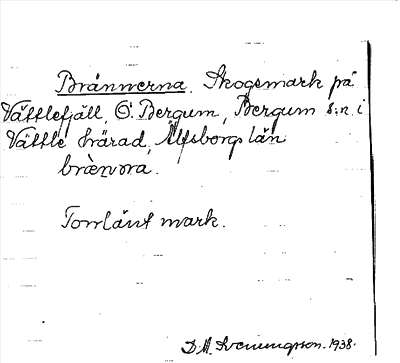 Brännerna. Skogsmark på
Vättlefjäll, Ö. Bergum, Bergum s:n i
Vättle härad, Älfsborgs län
brænɷra.
Tomlänt mark.
D. A. Svenungsson. 1938.